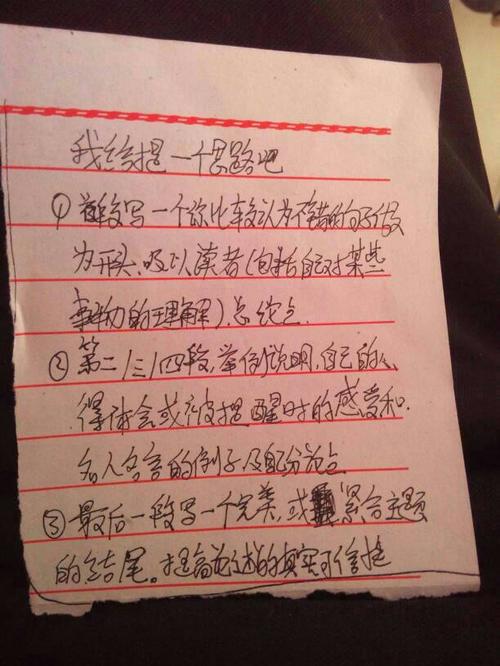 我给提一个思路吧
① 首段写一个你比较认为不错的句子做
为开头,吸引读者(包括自己对某些
事物的理解)总论点
② 第二/三/四段,举例说明,自己的心
得体会或被提醒时的感受和
名人名言的例子及分论点
③ 最后一段写一个完美,或紧合主题
的结尾。提高论述的真实可信性